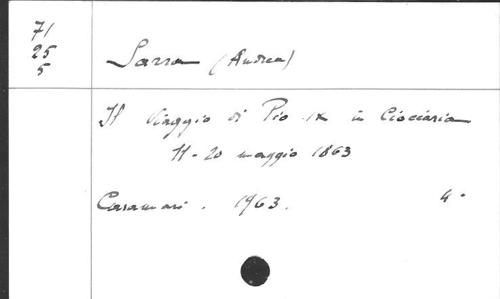 71
25
5
Sarra (Andrea)
Il Viaggio di Pio IX in Ciociaria
11-20 maggio 1863
Casamari. 1963. 4°